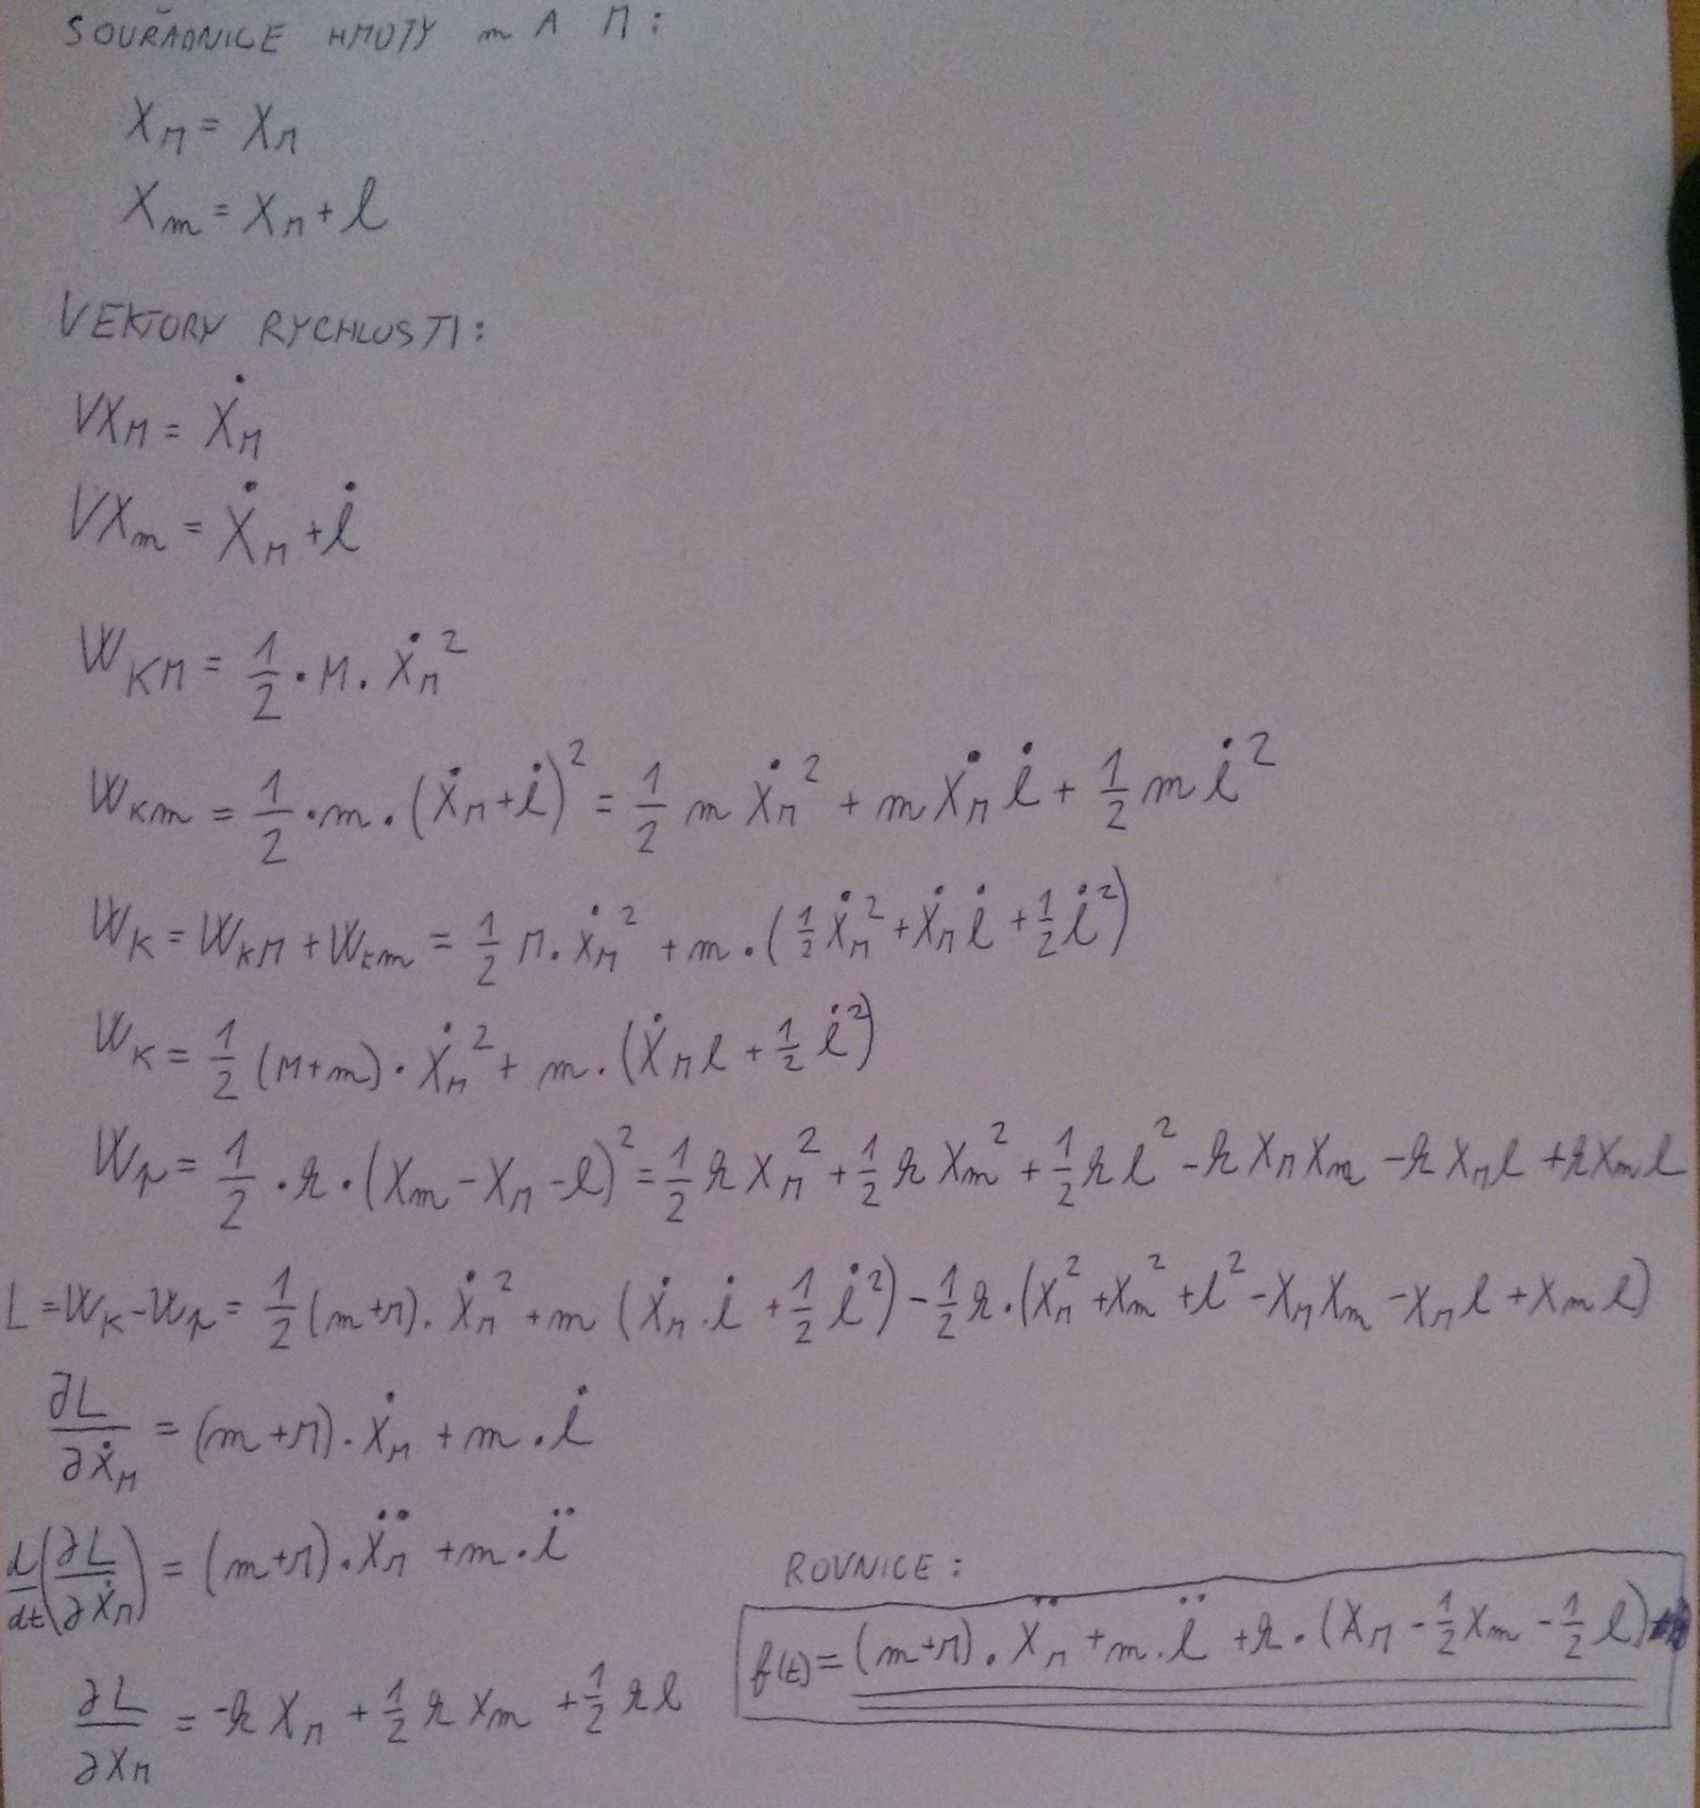 SOUŘADNICE HMOTY m A M:
X_M = X_M
X_m = X_M + l
VEKTORY RYCHLOSTI:
VX_M = Ẋ_M
VX_m = Ẋ_M + l̇
W_KM = 1/2 · M · ẋ_M²
W_Km = 1/2 · m · (ẋ_M + l̇)² = 1/2 m ẋ_M² + m ẋ_M l̇ + 1/2 m l̇²
W_K = W_KM + W_Km = 1/2 M · ẋ_M² + m · (1/2 ẋ_M² + ẋ_M l̇ + 1/2 l̇²)
W_K = 1/2 (M+m) · ẋ_M² + m · (ẋ_M l + 1/2 l̇²)
W_p = 1/2 · k · (X_m - X_M - l)² = 1/2 k X_M² + 1/2 k X_m² + 1/2 k l² - k X_M X_m - k X_M l + k X_m l
L = W_K - W_p = 1/2 (m+M) · ẋ_M² + m (ẋ_M · l̇ + 1/2 l̇²) - 1/2 k · (X_M² + X_m² + l² - X_M X_m - X_M l + X_m l)
∂L/∂ẋ_M = (m+M) · ẋ_M + m · l̇
d/dt (∂L/∂ẋ_M) = (m+M) · ẍ_M + m · l̈
ROVNICE:
f(t) = (m+M) · ẍ_M + m · l̈ + k · (X_M - 1/2 X_m - 1/2 l)
∂L/∂X_M = -k X_M + 1/2 k X_m + 1/2 k l